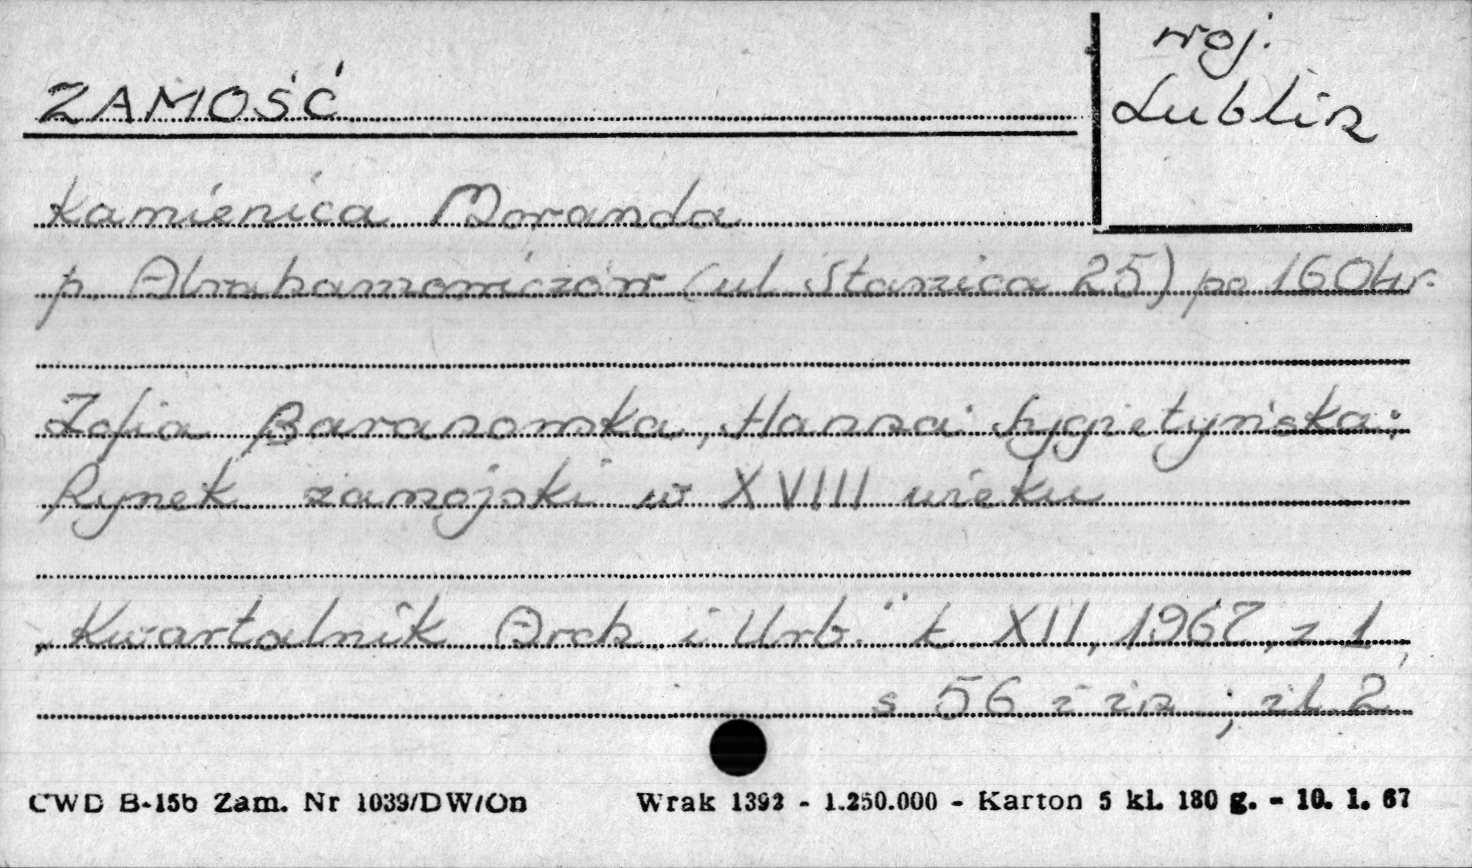 ZAMOŚĆ
woj.
Lublin
Kamienica Moranda
p. Abrahamowiczów (ul. Staszica 25) po 1604 r.
Zofia Baranowska, Hanna Sygietyńska;
Rynek zamojski w XVIII wieku
„Kwartalnik Arch. i Urb." t. XII, 1967, z. 1,
s 56 i in ; il. 2
CWD B-15b Zam. Nr 1039/DW/On Wrak 1392 - 1.250.000 - Karton 5 kl. 180 g. - 10. 1. 67